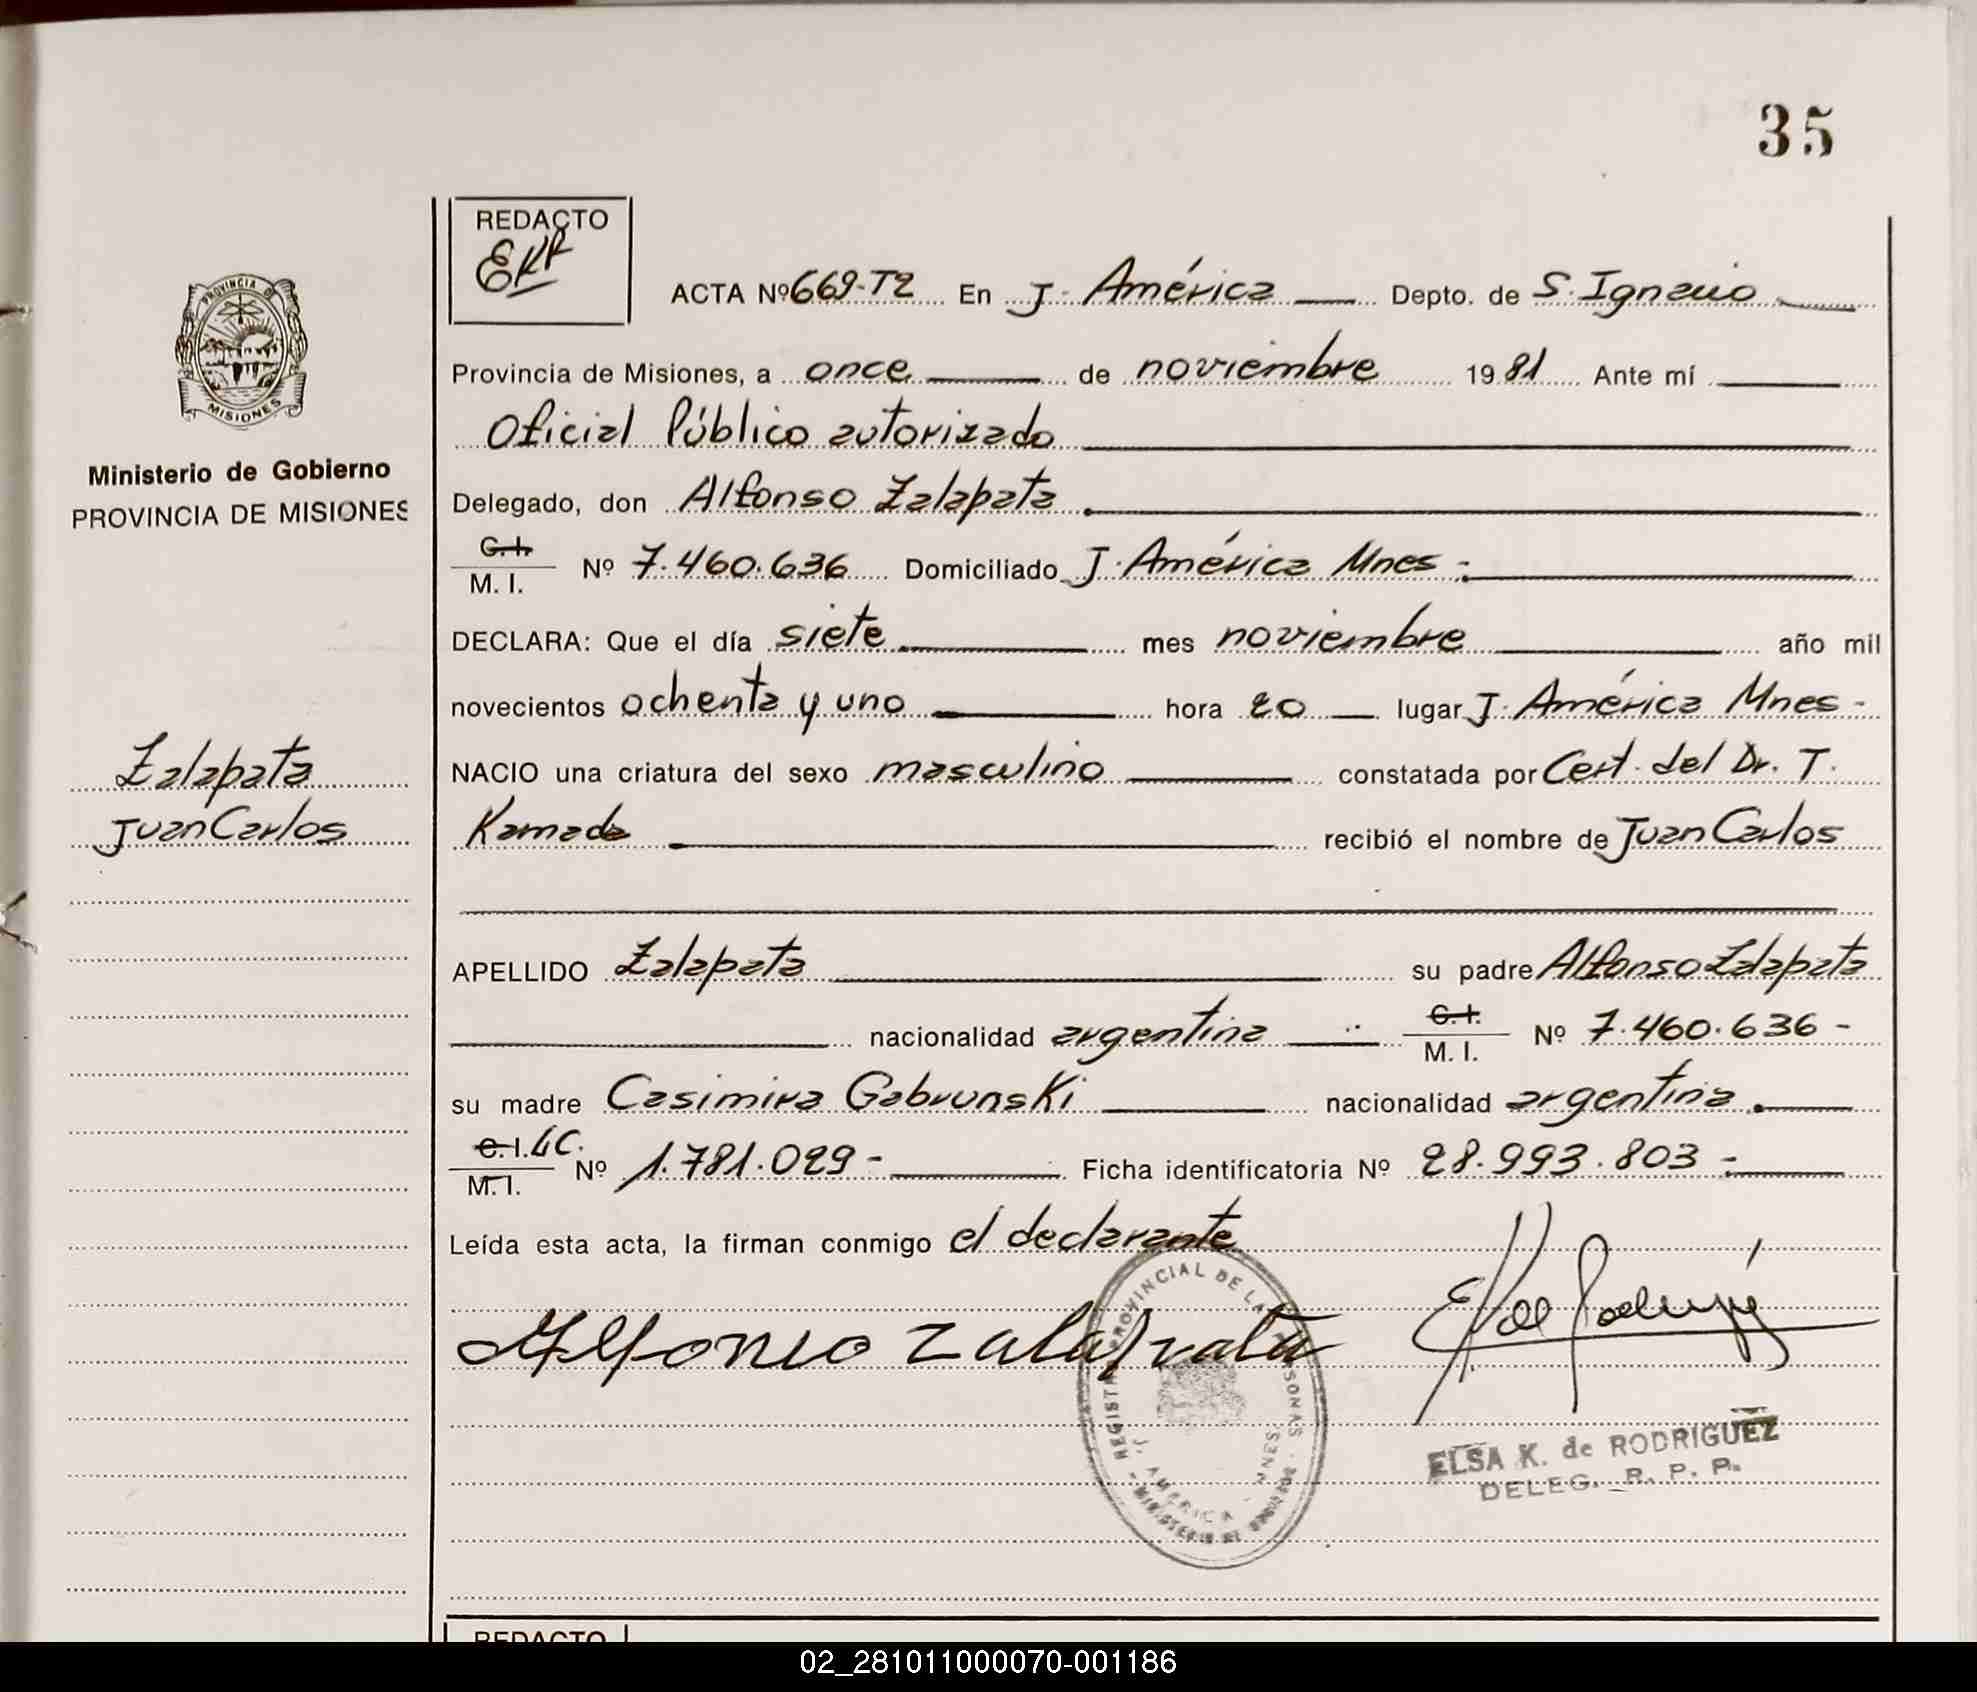 35
REDACTO
EKR
ACTA Nº 669-T2 En J. América Depto. de S. Ignacio
PROVINCIA DE
MISIONES
Provincia de Misiones, a once de noviembre 1981 Ante mí
Oficial Público autorizado
Ministerio de Gobierno
PROVINCIA DE MISIONES
Delegado, don Alfonso Zalapata
C. I.
M. I. Nº 7.460.636 Domiciliado J. América Mnes -
DECLARA: Que el día siete mes noviembre año mil
novecientos ochenta y uno hora 20 lugar J. América Mnes -
Zalapata
Juan Carlos
NACIO una criatura del sexo masculino constatada por Cert. del Dr. T.
Kamada recibió el nombre de Juan Carlos
APELLIDO Zalapata su padre Alfonso Zalapata
nacionalidad argentina C. I. M. I. Nº 7.460.636 -
su madre Casimira Gabrunski nacionalidad argentina
C. I. LC.
M. I. Nº 1.781.029 - Ficha identificatoria Nº 28.993.803 -
Leída esta acta, la firman conmigo el declarante
Alfonso Zalapata
REGISTRO PROVINCIAL DE LAS PERSONAS
J. AMERICA - MNES.
MINISTERIO DE GOBIERNO
E K de Rodriguez
ELSA K. de RODRIGUEZ
DELEG. R. P. P.
REDACTO
02_281011000070-001186